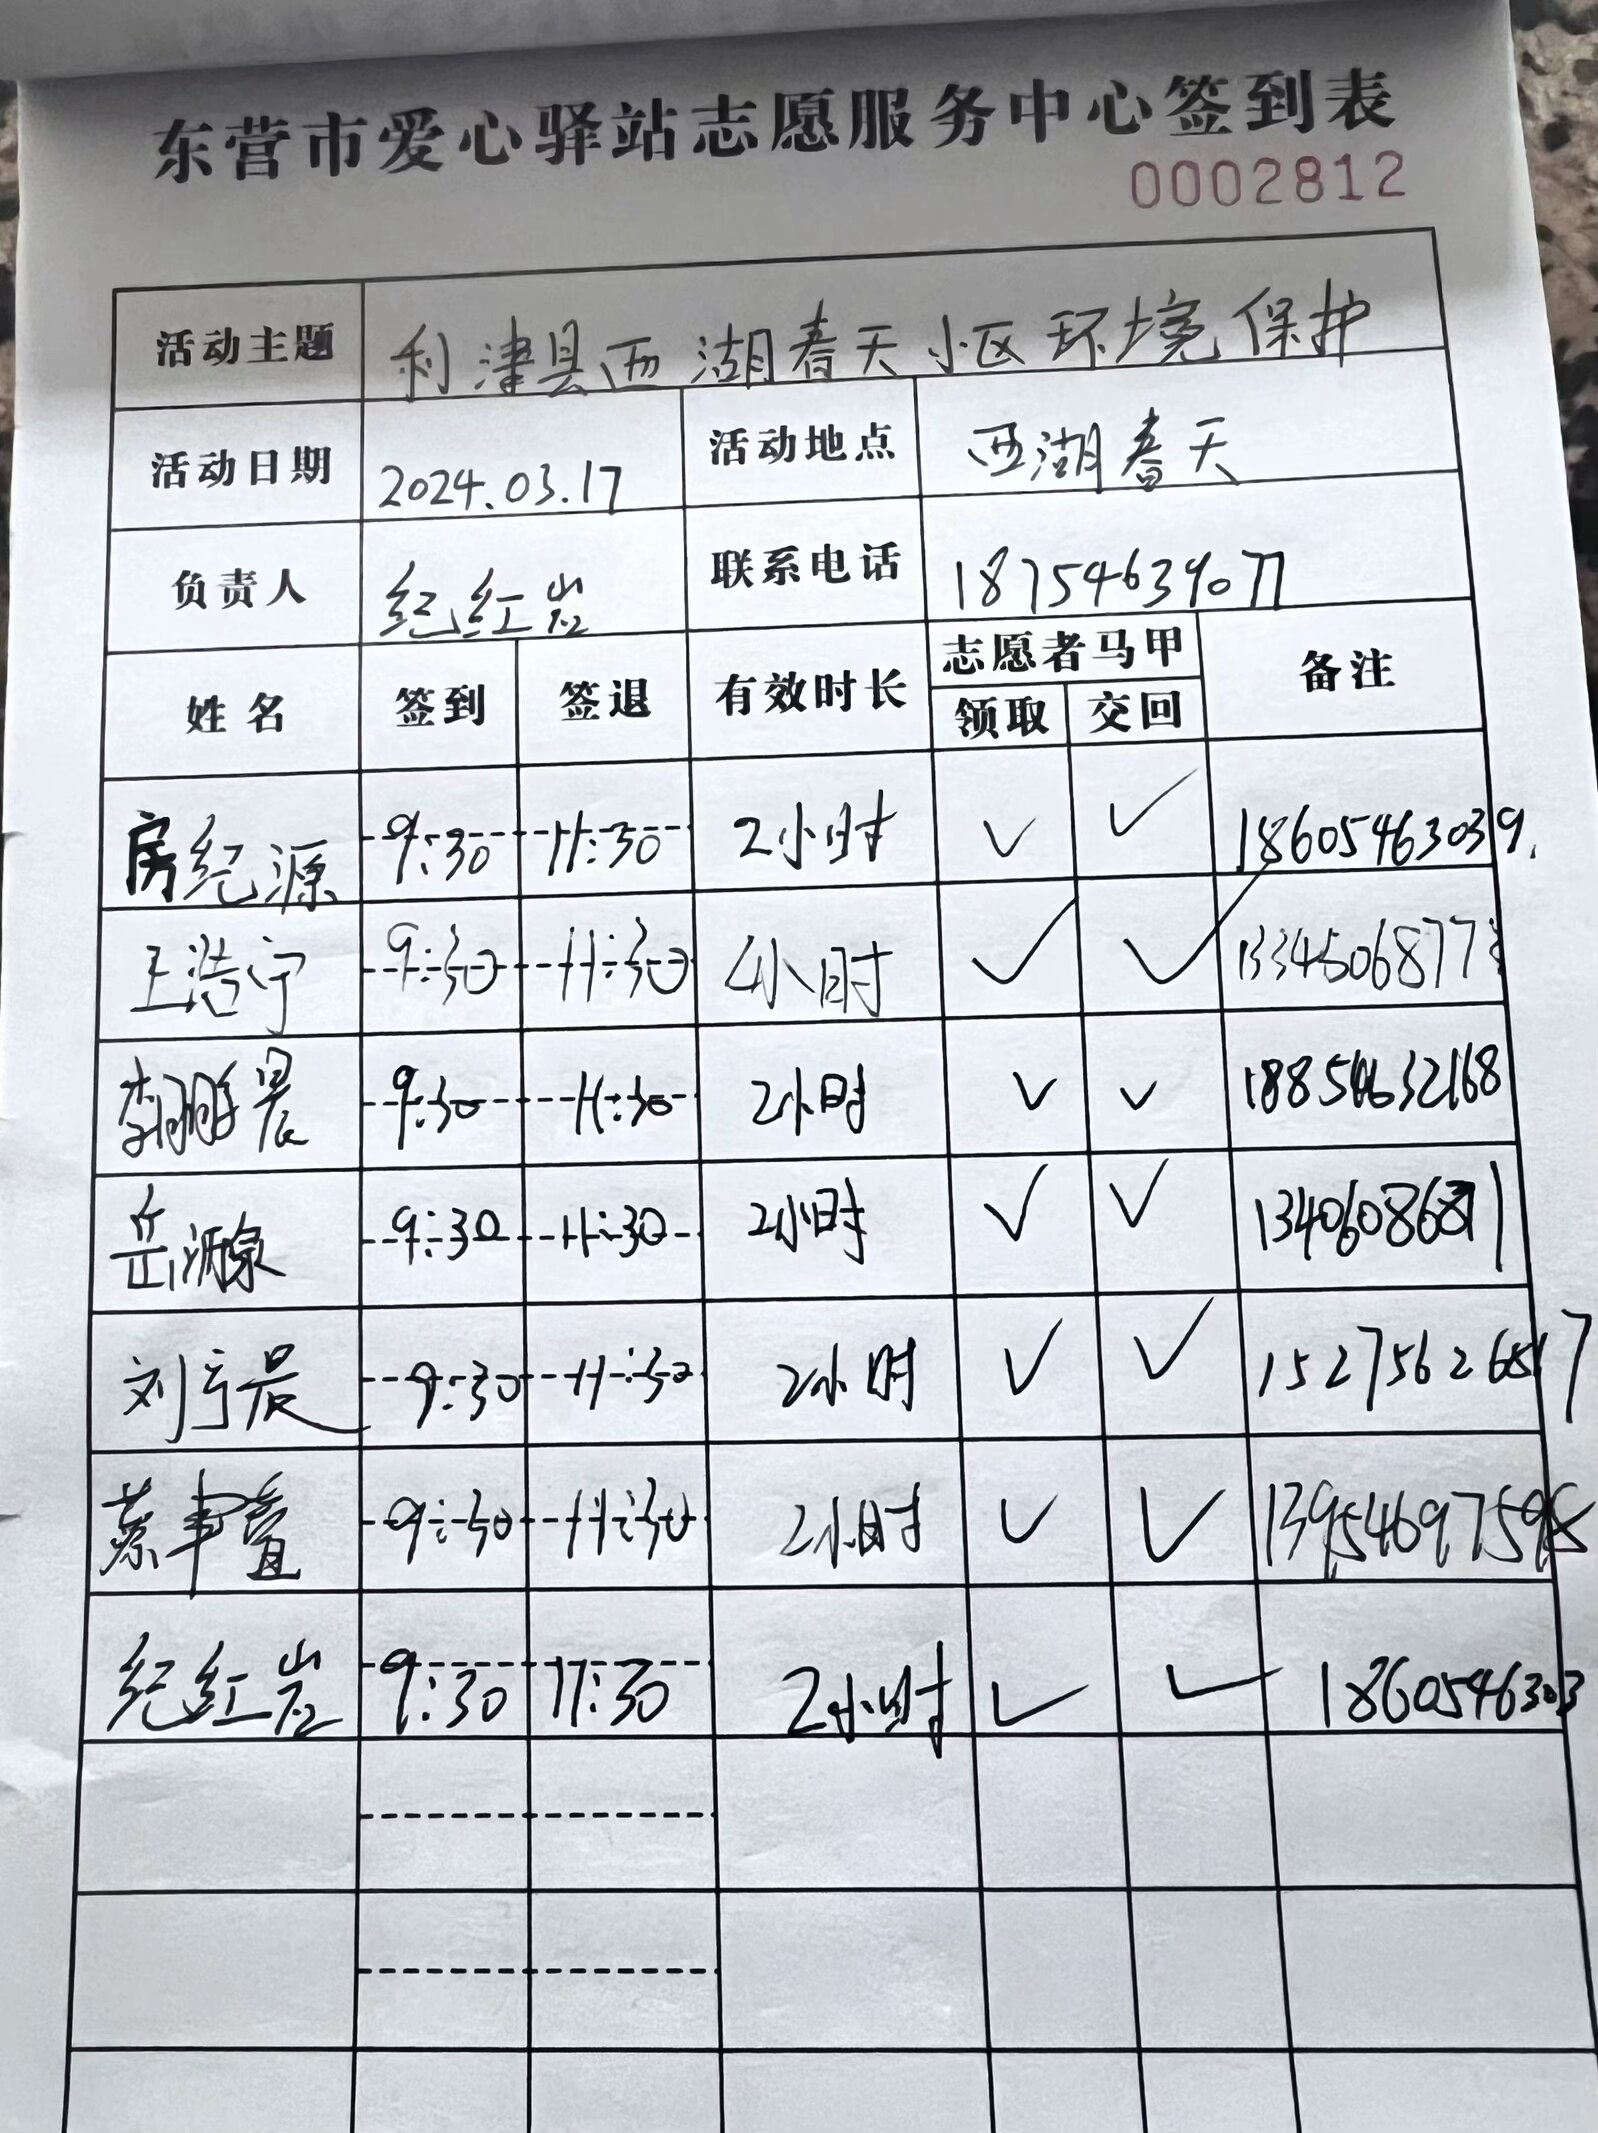 东营市爱心驿站志愿服务中心签到表
0002812
活动主题 利津县西湖春天小区环境保护
活动日期 2024.03.17 活动地点 西湖春天
负责人 纪红岩 联系电话 18754639077
姓名 签到 签退 有效时长 志愿者马甲 备注
领取 交回
房纪源 9:30 11:30 2小时 ✓ ✓ 18605463039
王浩宁 9:30 11:30 小时 ✓ ✓
李鹏晨 9:30 11:30 2小时 ✓ ✓ 18854632168
岳源 9:30 11:30 2小时 ✓ ✓
刘亨晨 9:30 11:30 2小时 ✓ ✓
蔡 9:30 11:30 2小时 ✓ ✓ 13954697598
纪红岩 9:30 11:30 2小时 ✓ ✓ 1860546303